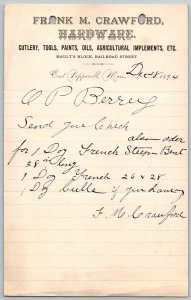 FRANK M. CRAWFORD,
HARDWARE.
CUTLERY, TOOLS, PAINTS, OILS, AGRICULTURAL IMPLEMENTS, ETC.
MAULT'S BLOCK, RAILROAD STREET.
East Pepperell, Mass., Dec 8 1894
O P Berrey
Send you Check
also order
for 1 Doz French Bent
28 in long
1 Doz French 26 & 28
1 Doz if you have
F. M. Crawford